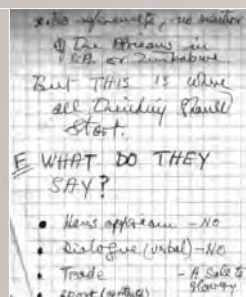 no mention
of The Africans in
S.A. or Zimbabwe.
But THIS is where
all thinking should
start.
E WHAT DO THEY
SAY?
• - NO
• Dialogue (verbal) - NO
• Trade - A sale to
slavery
• Sport